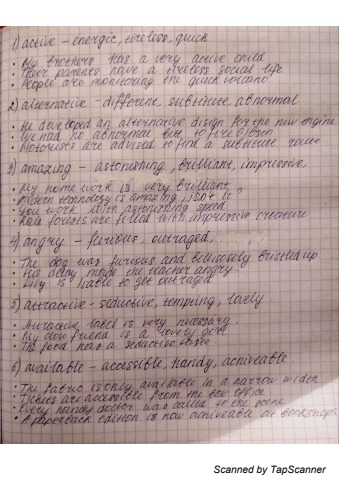 1) active - energic, tireless, quick
• My brothers has a very active child
• Their parents have a tireless social life
• People are monitoring the quick volcano
2) alternative - different, substitute, abnormal
• He developed an alternative disign for the new engine
• We had no abnormal but to fire Gibson
• Motorists are advised to find a substitute route
3) amazing - astonishing, brilliant, impressive
• My home work is very brilliant
• Modern technology is amazing, isn't it?
• You work with astonishing speed
• Rain forests are filled with impressive creature
4) angry - furious, outraged,
• The dog was furious and bellicosely bristled up
• His delay made the teacher angry
• Lily is liable to get outraged
5) attractive - seductive, tempting, lovely
• Attractive label is very necessary
• My close friend is a lovely girl
• The food has a seductive taste
6) available - accessible, handy, achiveable
• The fabric is only available in a narrow width
• Tickets are accessible from the box office
• Every handy doctor was called to the scene
• A paperback edition is now achiveable at bookshops
Scanned by TapScanner